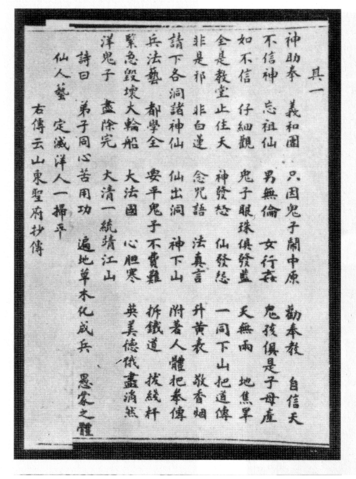 其一
神助拳　義和團　只因鬼子鬧中原　勸奉教　自信天
不信神　忘祖仙　男無倫　女行姦　鬼孩俱是子母產
如不信　仔細觀　鬼子眼珠俱發藍　天無雨　地焦旱
全是教堂止住天　神發怒　仙發怨　一同下山把道傳
非是邪　非白蓮　念咒語　法真言　升黃表　敬香煙
請下各洞諸神仙　仙出洞　神下山　附著人體把拳傳
兵法藝　都學全　要平鬼子不費難　拆鐵道　拔線杆
緊急毀壞大輪船　大法國　心胆寒　英美德俄盡消然
洋鬼子　盡除完　大清一統靖江山
詩曰　弟子同心苦用功　遍地草木化成兵　愚蒙之體
仙人藝　定滅洋人一掃平
右傳云山東聖府抄傳